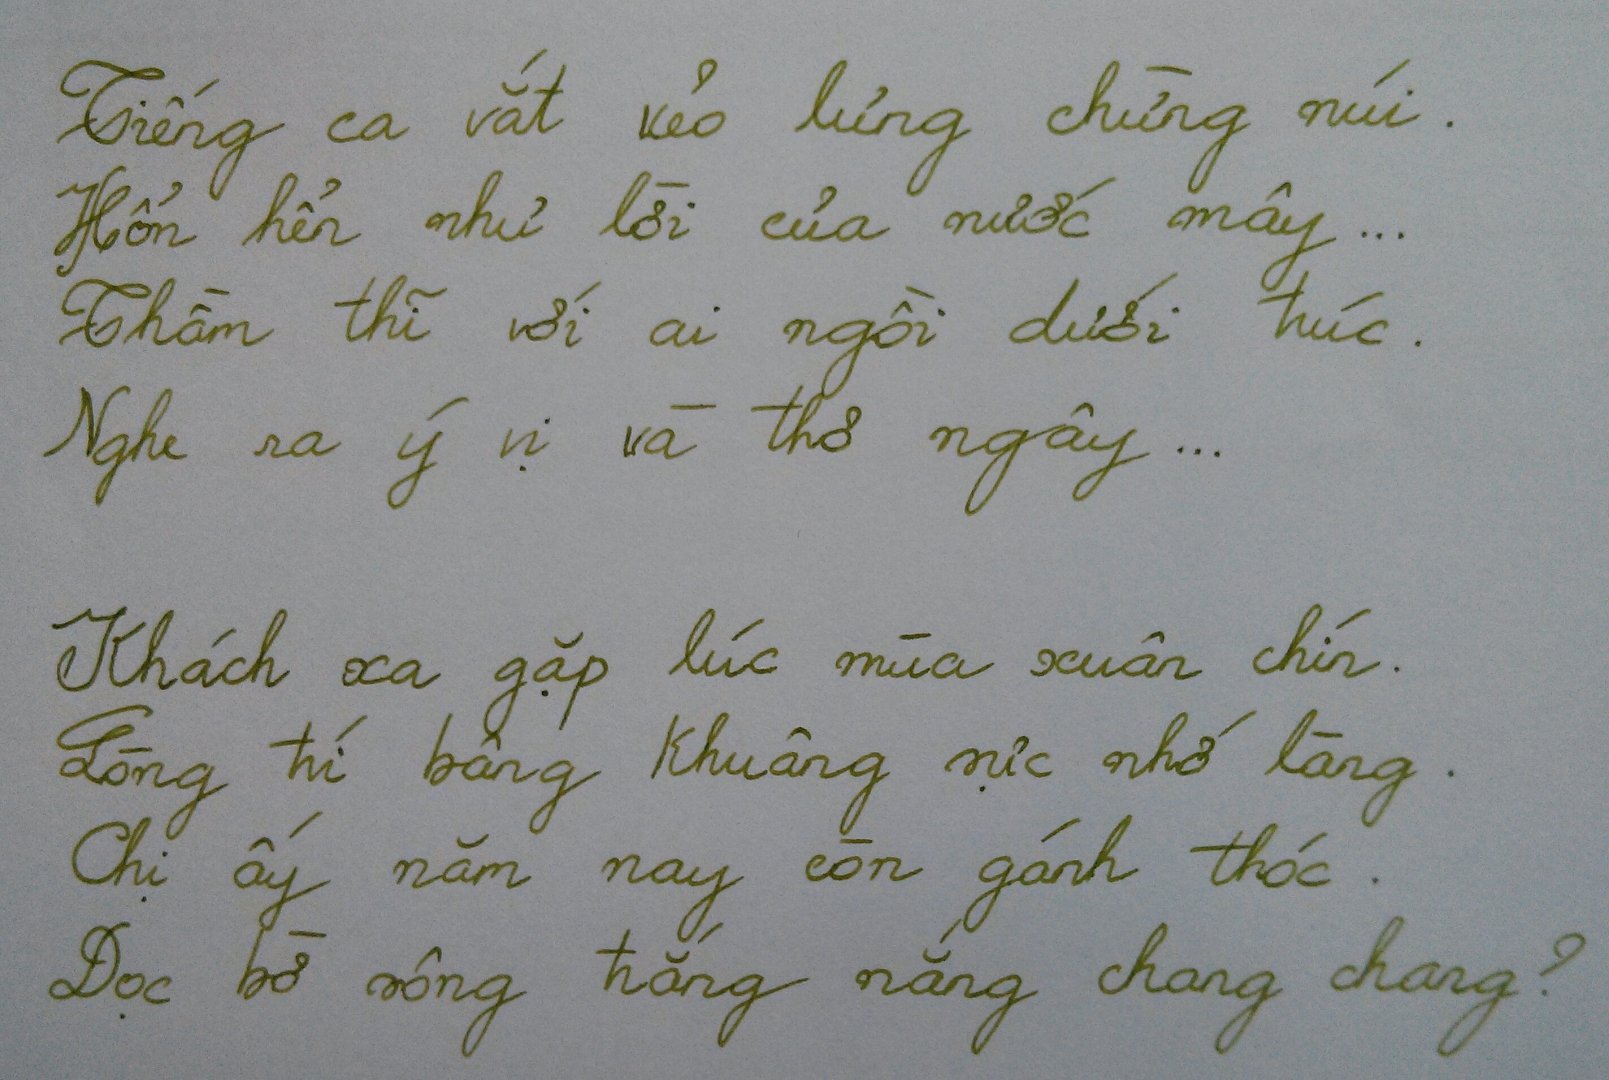 Tiếng ca vắt vẻo lưng chừng núi.
Hổn hển như lời của nước mây...
Thầm thĩ với ai ngồi dưới trúc.
Nghe ra ý vị và thơ ngây...
Khách xa gặp lúc mùa xuân chín.
Lòng trí bâng khuâng sực nhớ làng.
Chị ấy năm nay còn gánh thóc.
Dọc bờ sông trắng nắng chang chang?